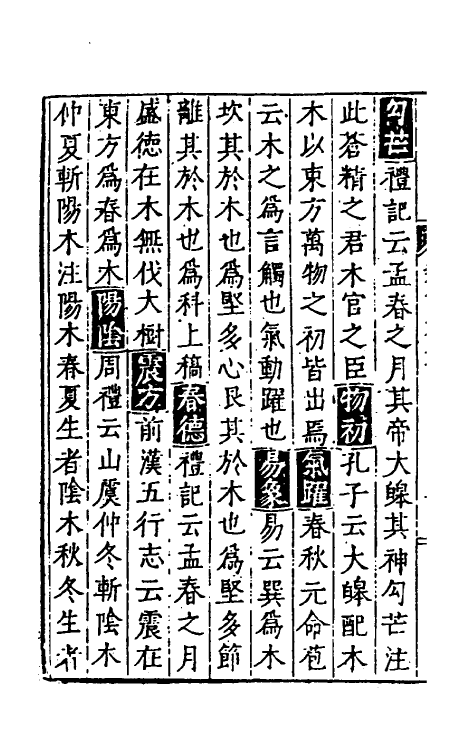 勾芒禮記云孟春之月其帝大皥其神勾芒注
此蒼精之君木官之臣物初孔子云大皥配木
木以東方萬物之初皆出焉氣躍春秋元命苞
云木之爲言觸也氣動躍也易象易云巽爲木
坎其於木也爲堅多心艮其於木也爲堅多節
離其於木也爲科上稿春德禮記云孟春之月
盛德在木無伐大樹震方前漢五行志云震在
東方爲春爲木陽陰周禮云山虞仲冬斬陰木
仲夏斬陽木注陽木春夏生者陰木秋冬生者